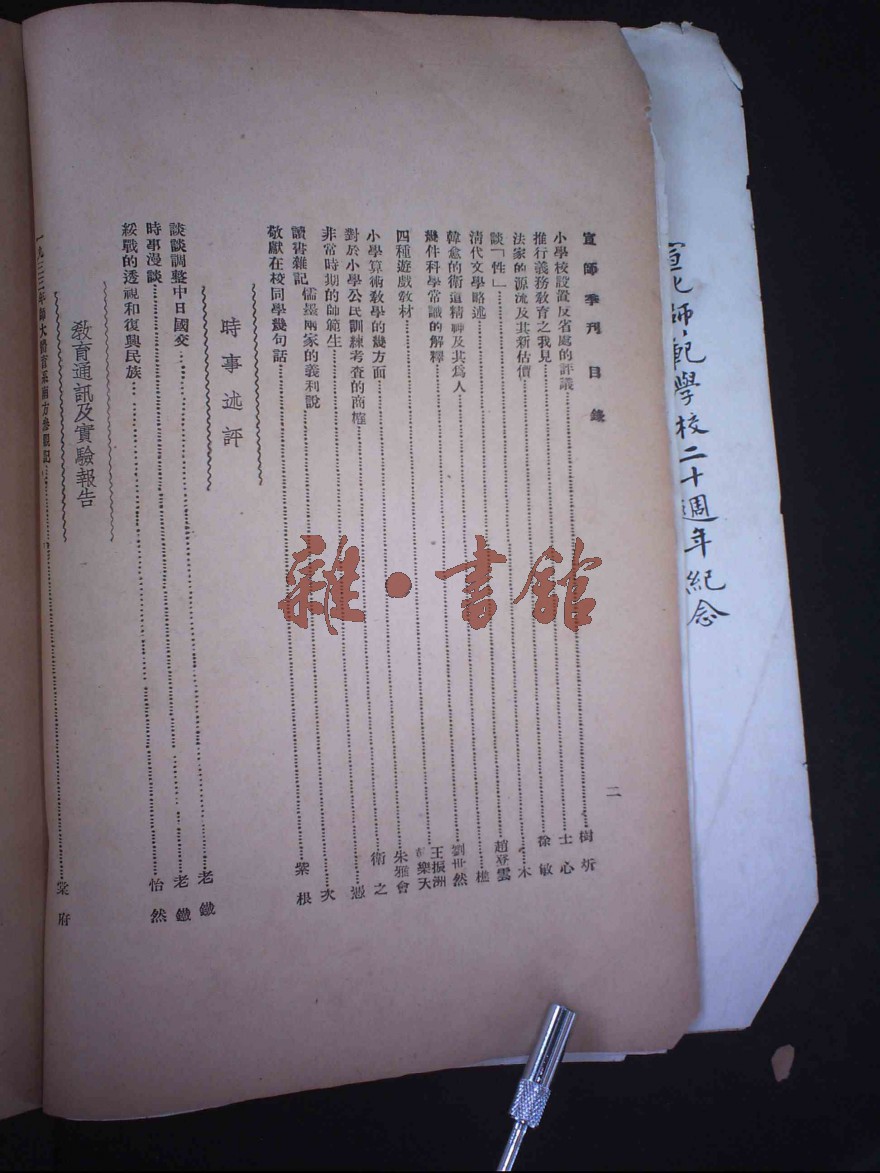 宣化師範學校二十週年紀念
宣師季刊 目錄 二
小學校設置反省處的評議 樹圻
推行義務教育之我見 士心
法家的源流及其新估價 徐敏
談「性」 木
清代文學略述 趙登雲
韓愈的衛道精神及其為人 樵
幾件科學常識的解釋 劉世然
四種遊戲教材 王振洲 樂天
小學算術教學的幾方面 朱雅會
對於小學公民訓練考查的商榷 衛之
非常時期的師範生 憑
讀書雜記 儒墨兩家的義利說 次
敬獻在校同學幾句話 紫根
時事述評
談談調整中日國交 老鐵
時事漫談 老鐵
綏戰的透視和復興民族 怡然
教育通訊及實驗報告
一九三三年師大體育系南方參觀記 棠府
雜·書館